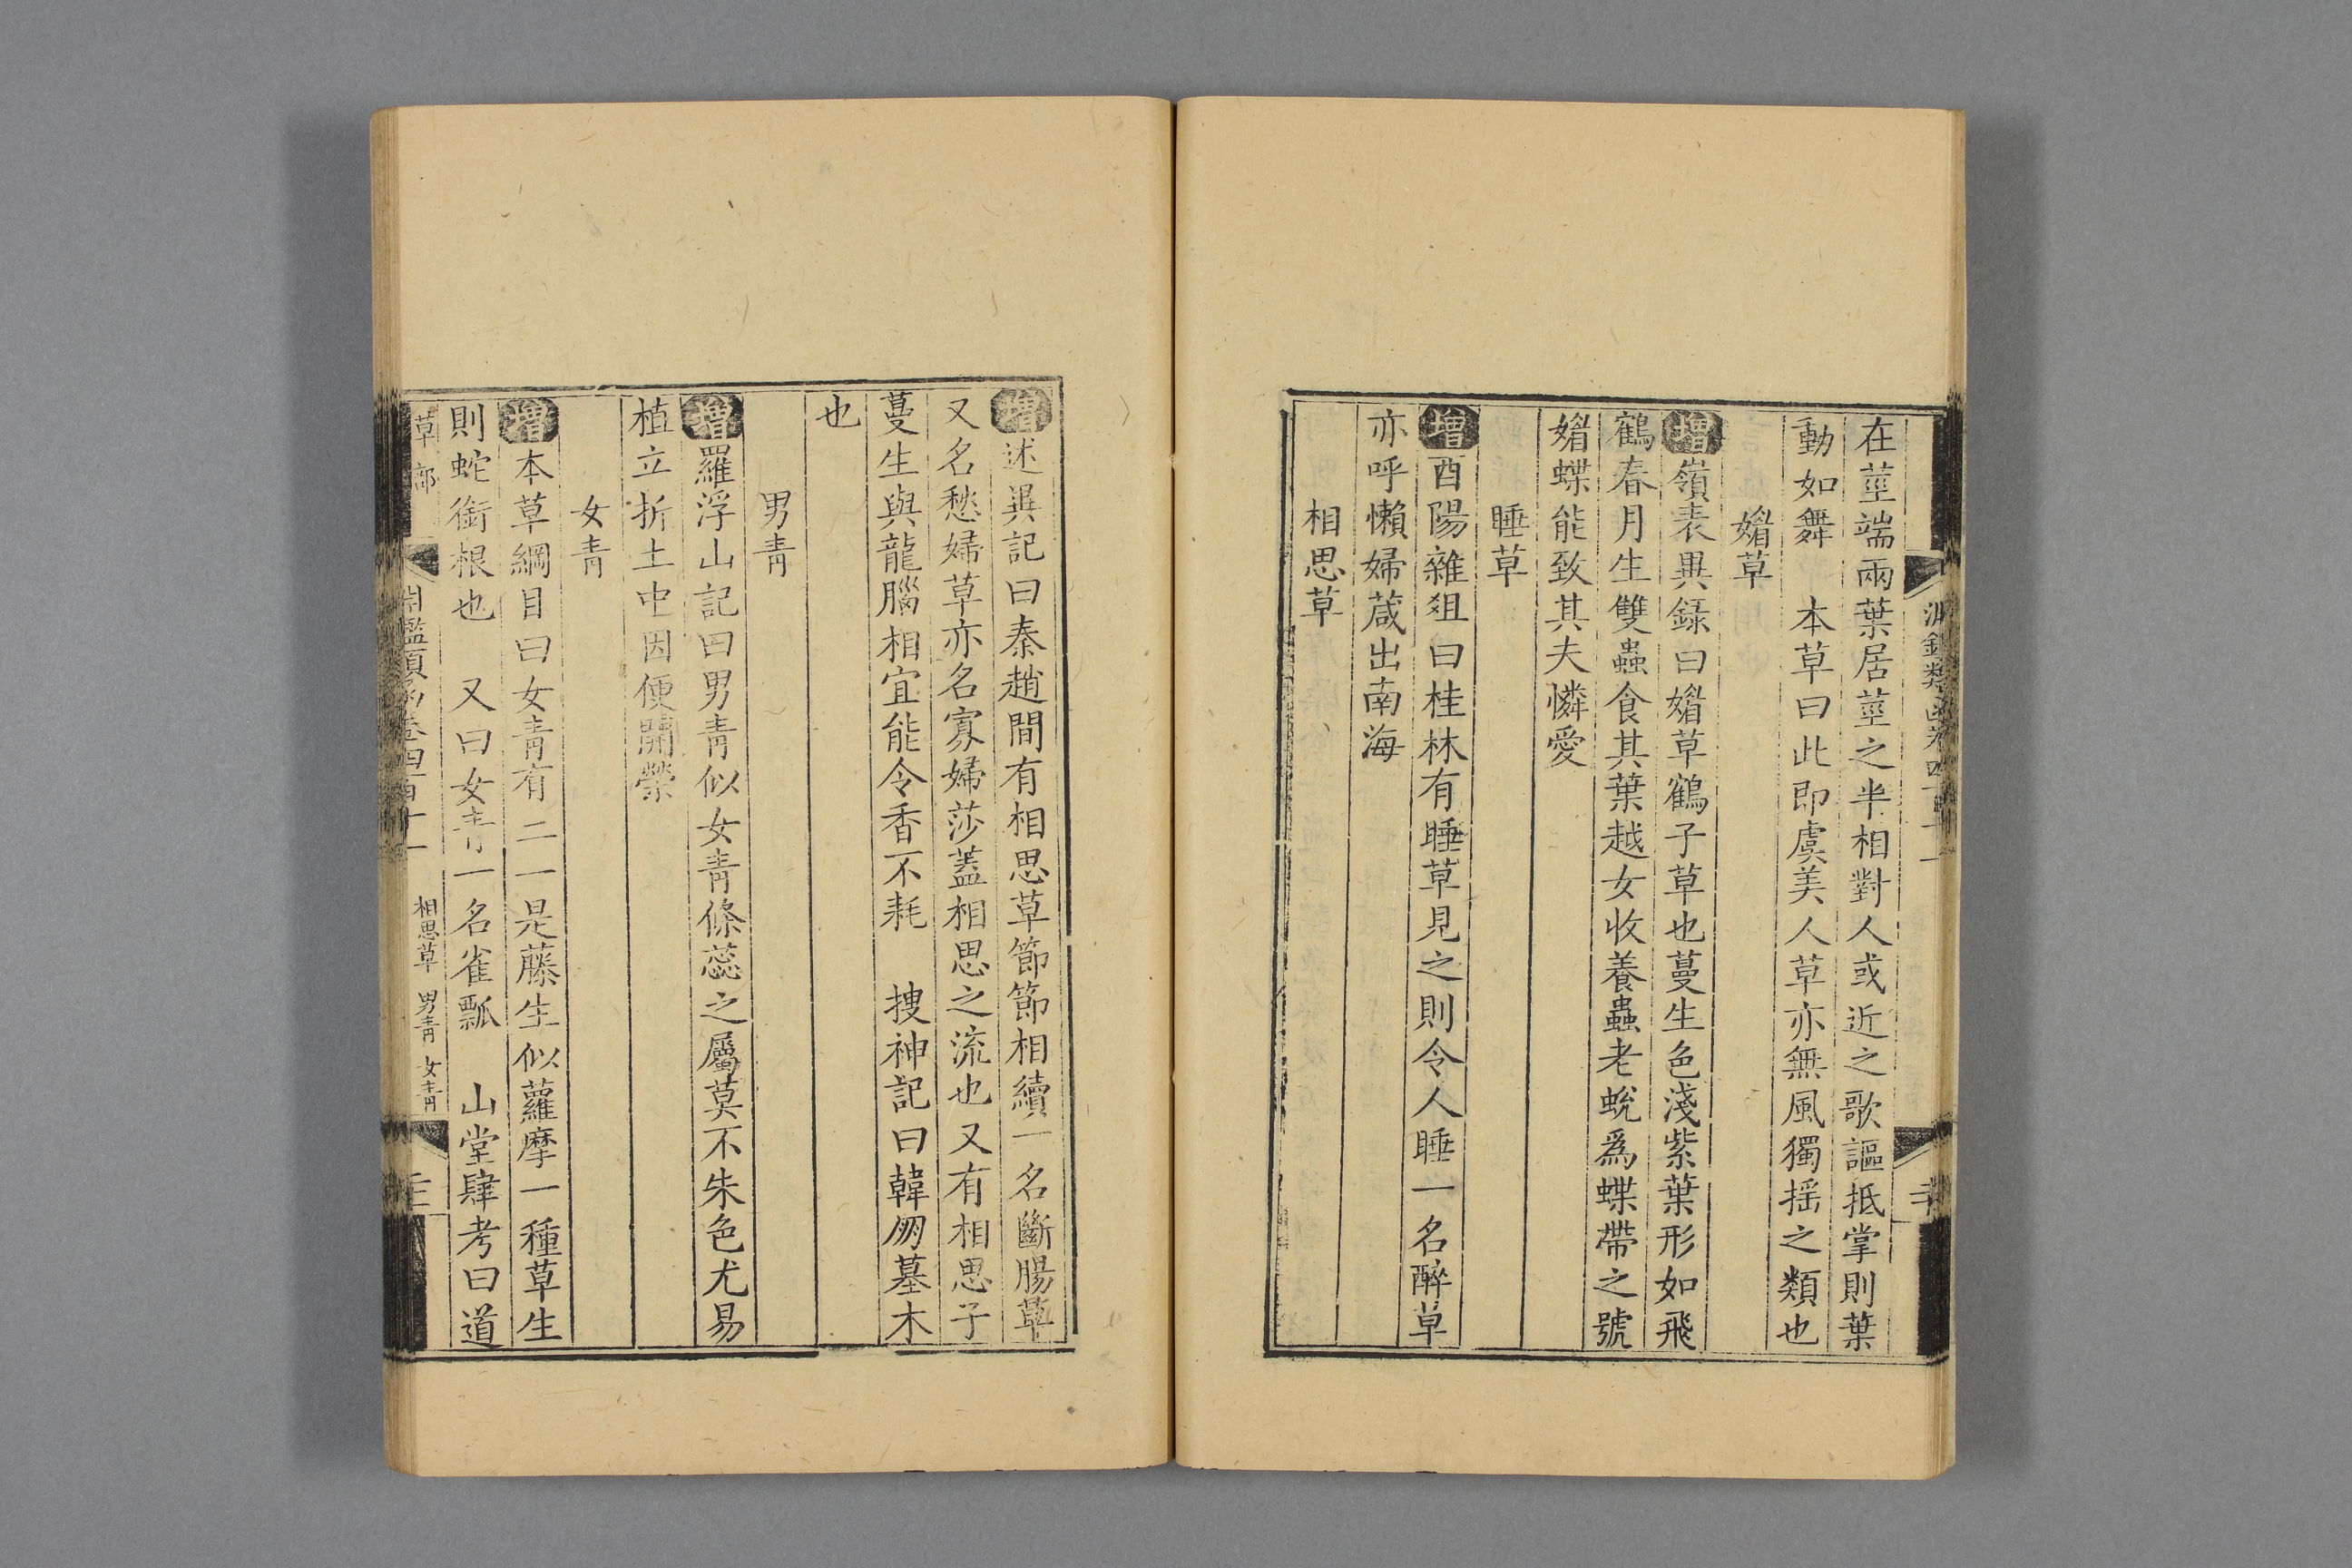 在莖端兩葉居莖之半相對人或近之歌謳抵掌則葉
動如舞　本草曰此即虞美人草亦無風獨搖之類也
媚草
增嶺表異錄曰媚草鶴子草也蔓生色淺紫葉形如飛
鶴春月生雙蟲食其葉越女收養蟲老蛻爲蝶帶之號
媚蝶能致其夫憐愛
睡草
增酉陽雜俎曰桂林有睡草見之則令人睡一名醉草
亦呼懶婦葴出南海
相思草
增述異記曰秦趙間有相思草節節相續一名斷腸草
又名愁婦草亦名寡婦莎蓋相思之流也又有相思子
蔓生與龍腦相宜能令香不耗　搜神記曰韓朋墓木
也
男青
增羅浮山記曰男青似女青條蕊之屬莫不朱色尤易
植立折土中因便開榮
女青
增本草綱目曰女青有二一是藤生似蘿摩一種草生
則蛇銜根也　又曰女青一名雀瓢　山堂肆考曰道
草部
淵鑑類函卷四百十一
相思草　男青　女青